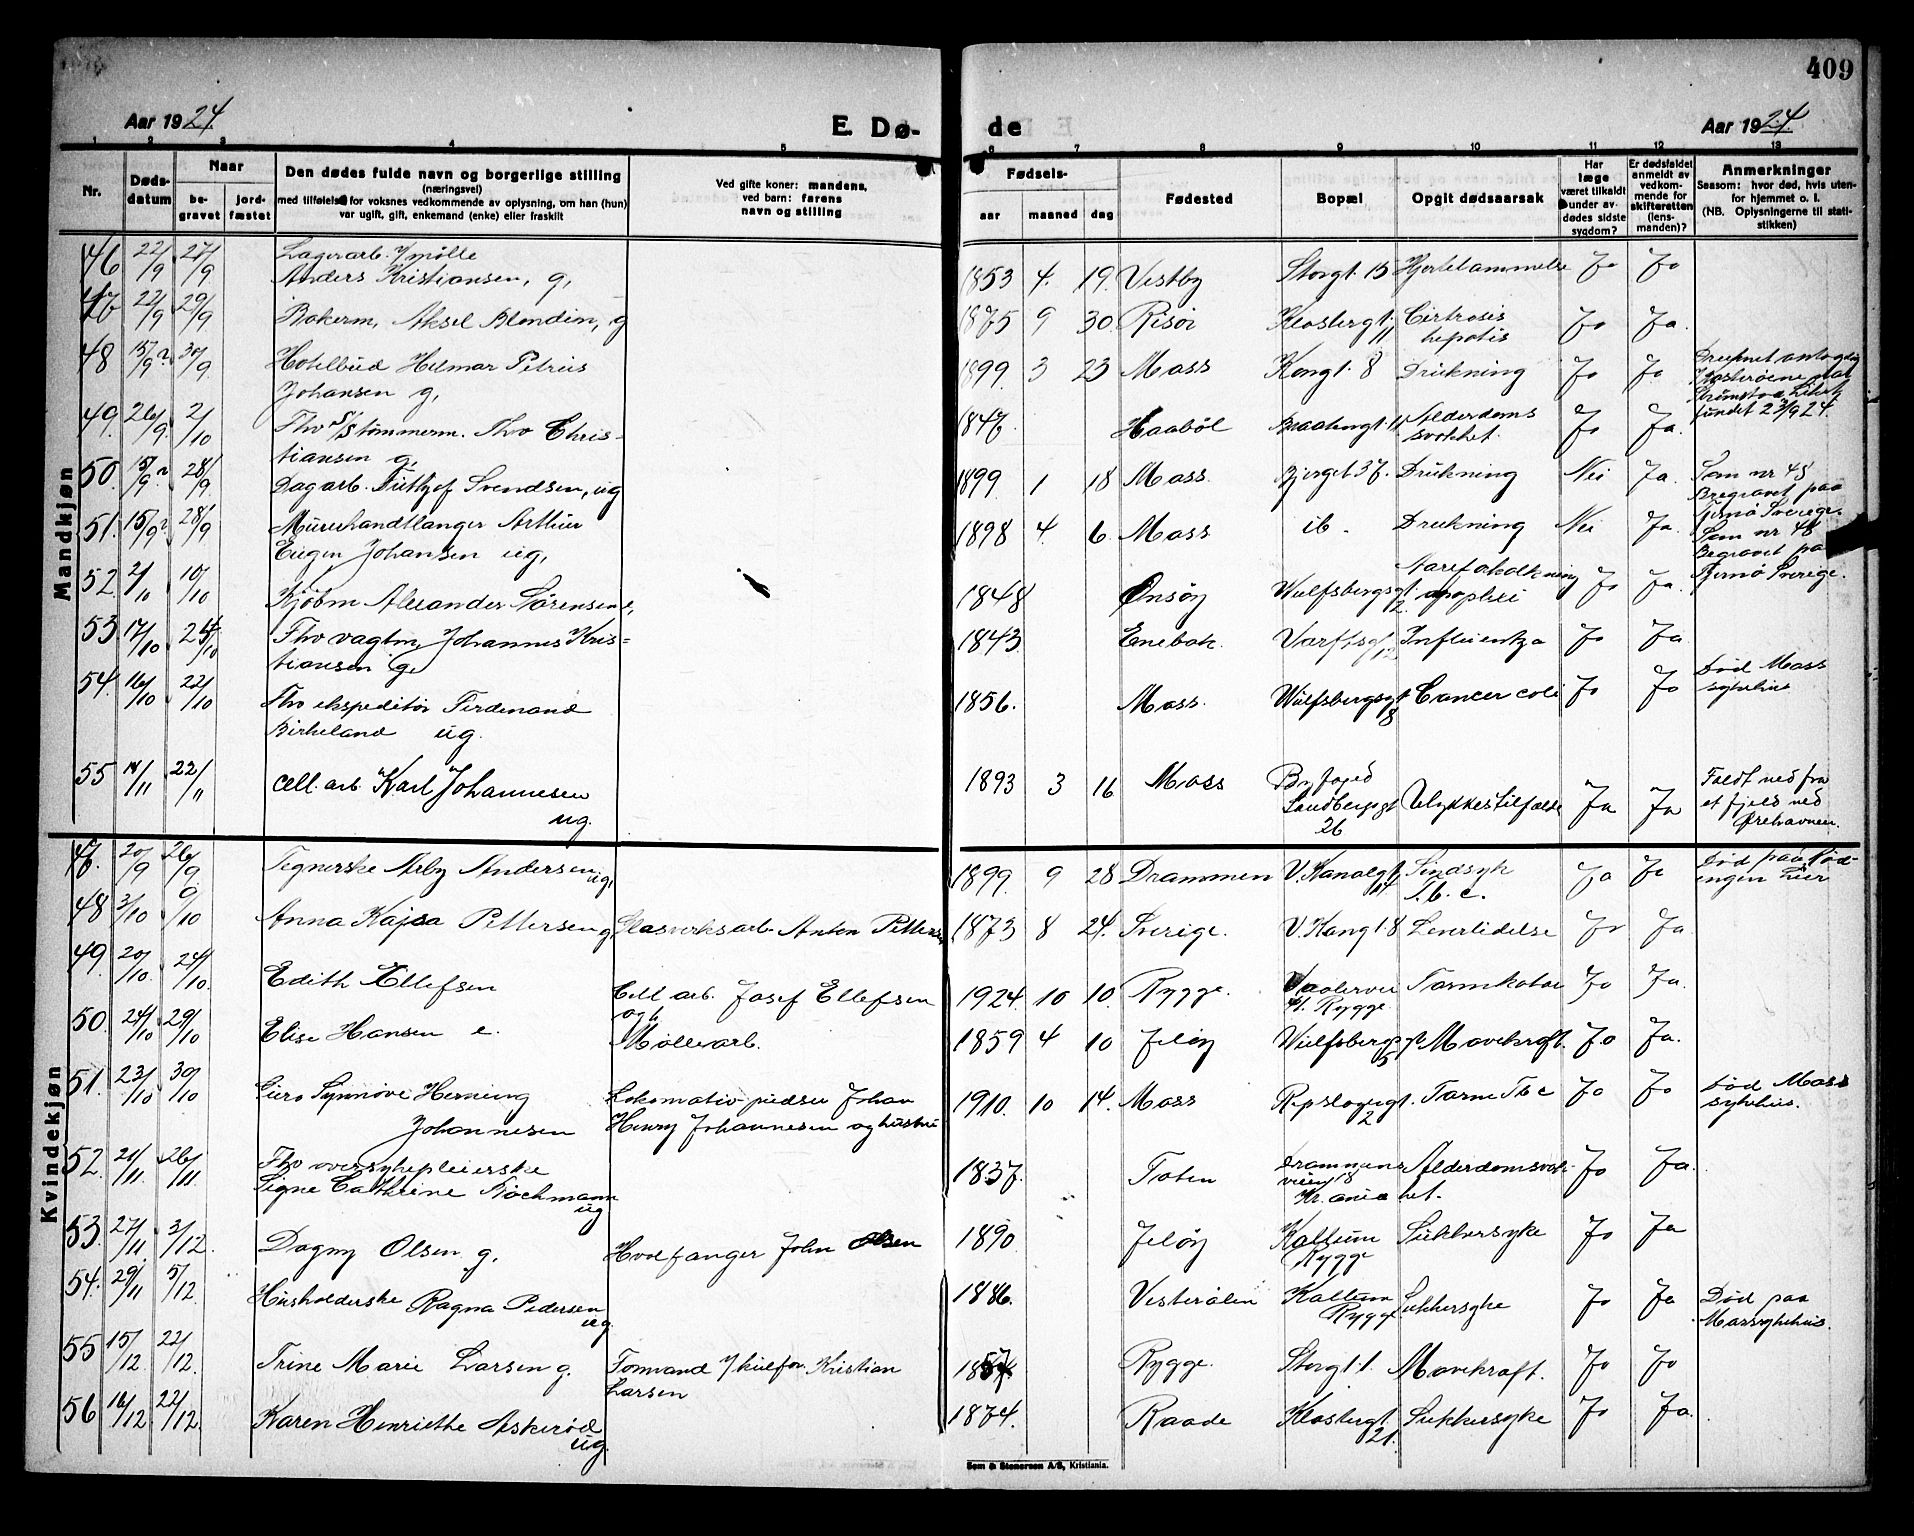 409
Aar 1924.
E. Dø-
de
Aar 1924.
1 2 3 4 5 6 7 8 9 10 11 12 13
Nr.
Døds-
datum
Naar
be-
gravet
jord-
fæstet
Den dødes fulde navn og borgerlige stilling
(næringsvei)
med tilføielse for voksnes vedkommende av oplysning, om han (hun)
var ugift, gift, enkemand (enke) eller fraskilt
Ved gifte koner: mandens,
ved barn: farens
navn og stilling
Fødsels-
aar
maaned
dag
Fødested
Bopæl
Opgit dødsaarsak
Har
læge
været tilkaldt
under av-
dødes sidste
sygdom?
Er dødsfaldet
anmeldt av
vedkom-
mende for
skifteretten
(lens-
manden)?
Anmerkninger
Seasom: hvor død, hvis uten-
for hjemmet o. l.
(NB. Oplysningerne til stati-
stikken)
Mandkjøn
46 22/9 27/9 Lagerarb. v/mølle
Anders Kristiansen, g, 1853 4. 19. Vestby Storgt. 15 Hjertelammelse Ja Ja
47 22/9 29/9 Bakerm. Aksel Blondin, g 1875 9 30 Risør Klostergt. 11 Cirrosis
hepatis Ja Ja.
48 15/9? 30/9 Hotelbud Hilmar Petrus
Johansen g, 1899 3 23 Moss Kongt. 8 Drukning Ja Ja
fundet 23/9 24.
49. 26/9. 2/10 Fhv S/S tømmerm. Thv Chris-
tiansen g, 1847. Haabøl 11 Alderdoms
svakhet. Ja Ja.
50. 15/9? 28/9 Dagarb. Svendsen, ug 1899. 1 18 Moss. Bjerget 37. Drukning Nei Ja. Som nr 48
Begravet paa
Tjernø Sverige.
51. 15/9? 28/9 Murerhandtlanger Arthur
Eugen Johansen ug, 1898 4. 6. Moss ib. Drukning Nei Ja. Som nr 48
Begravet paa
Tjernø Sverige.
52. 2/10 10/10 Kjøbm Alexander Sørensen e, 1848 Onsøy Wulfsbergsgt
2. Aareforkalkning
apoplexi Ja Ja.
53 17/10 24/10 Fhv vagtm Johannes Kris-
tiansen g. 1843 Enebak. Værftsgt Influentza Ja Ja.
54. 16/10 22/10 Fhv ekspeditør Ferdinand
Birkeland ug. 1856. Moss. Wulfsbergsgt
8 Cancer coli Ja Ja Død Moss
sykehus
55 22/11 cell. arb. Karl Johannesen
ug. 1893 3 16 Moss
Sandbergsgt
26 Ulykkestilfælde Ja Ja Faldt ned fra
et fjeld ved
Ørehavnen.
Kvindekjøn
47. 20/9 26/9 Tegnerske Arby Andersen ug, 1899. 9 28 Drammen V. Kanalgt
14 Sindsyk
T.b.c. Ja Ja Død paa Rød-
ingen Lier
48 3/10 9/10 Anna Kajsa Pettersen g, Glasverksarb. Anton Pettersen 1873 8 24. Sverige. V. Kangt. 8 Leverlidelse Ja Ja.
49. 20/10. 24/10. Edith Ellefsen Cell arb. Josef Ellefsen
ogh 1924. 10 10. Rygge. Vaalervei
41. Rygge Tarmkatar Ja Ja.
50. 24/10 29/10 Elise Hansen e. Møllearb. 1859 4 10 Jeløy Wulfsbergsgt
5 Mavekræft. Ja Ja.
51. 23/10 30/10 Guro Synnøve Herning
Johannesen Lokomotivpudser Johan
Henry Johannesen og hustru 1910. 10 14. Moss Repslagergt.
2 Tarm Tbc Ja Ja Død Moss
sykehus.
52. 21/11 26/11 Fhv oversykepleierske
Signe Cathrine Köchmann
ug 1837. Toten Drammens
veien 18
Kr.ania Alderdomssvak-
het. Ja Ja.
53. 27/11. 3/12. Dagny Olsen g, Hvalfanger John Olsen 1890 Jeløy Kallum
Rygge Sukkersyke Ja Ja
54. 29/11 5/12. Husholderske Ragna Pedersen
ug. 1886. Vesterålen Kallum
Rygge Sukkersyke Ja Ja Død paa
Mossykehus.
55 15/12 22/12. Trine Marie Larsen g. Formand Kristian
Larsen 1857 Rygge. Storgt. 1. Mavekræft. Ja Ja
56 16/12 22/12. Karen Henriette Askerød
ug. 1874. Raade Klostergt.
21. Sukkersyke Ja Ja.
Sem & Stenersen A/S, Kristiania.